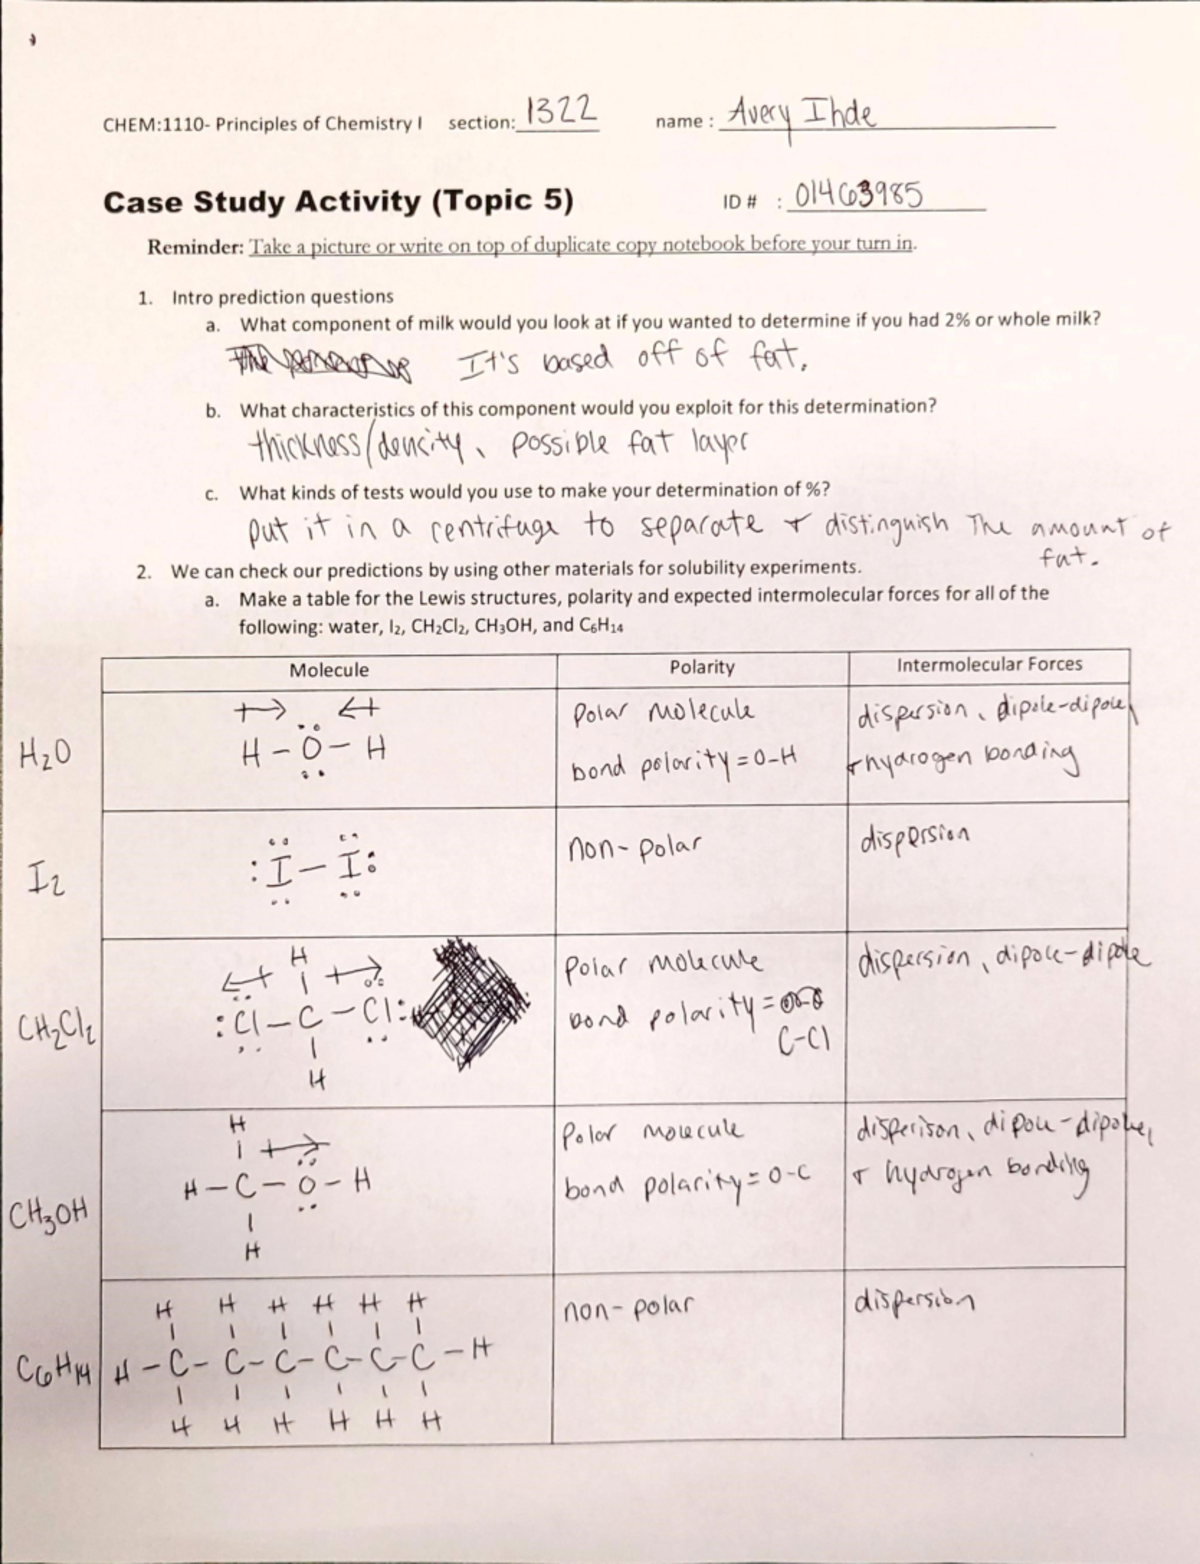 CHEM:1110- Principles of Chemistry I section: 1322 name : Avery Ihde
Case Study Activity (Topic 5) ID # : 01463985
Reminder: Take a picture or write on top of duplicate copy notebook before your turn in.
1. Intro prediction questions
a. What component of milk would you look at if you wanted to determine if you had 2% or whole milk?
It's based off of fat.
b. What characteristics of this component would you exploit for this determination?
thickness/dencity, possible fat layer
c. What kinds of tests would you use to make your determination of %?
put it in a centrifuge to separate + distinguish The amount of
fat.
2. We can check our predictions by using other materials for solubility experiments.
a. Make a table for the Lewis structures, polarity and expected intermolecular forces for all of the
following: water, I₂, CH₂Cl₂, CH₃OH, and C₆H₁₄
Molecule Polarity Intermolecular Forces
Polar molecule dispersion, dipole-dipole,
H₂O H - O - H bond polarity = O-H + hydrogen bonding
I₂ :I - I: non-polar dispersion
H
Polar molecule dispersion, dipole-dipole
CH₂Cl₂ :Cl - C - Cl: bond polarity =
C-Cl
H
H
Polar molecule disperison, dipole-dipole,
CH₃OH H - C - O - H bond polarity = O-C + hydrogen bonding
H
H H H H H H non-polar dispersion
C₆H₁₄ H - C - C - C - C - C - C - H
H H H H H H